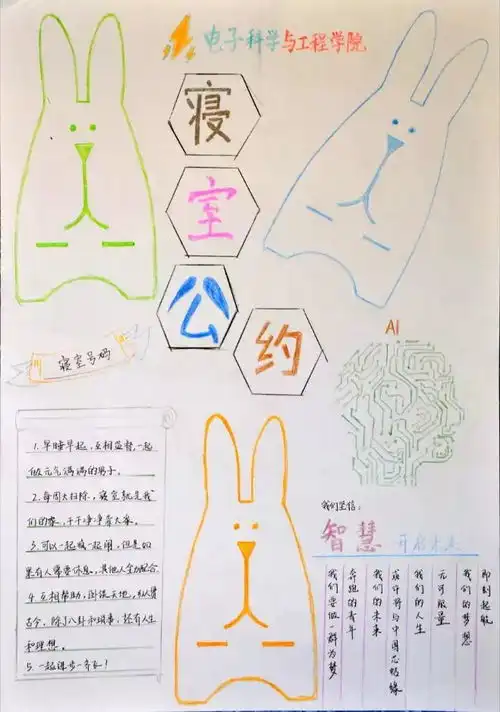 电子科学与工程学院
寝
室
公
约
寝室号码
AI
1.早睡早起,互相监督,一起
做元气满满的男子。
2.每周大扫除,寝室就是我
们的家,干干净净靠大家。
3.可以一起嗨一起闹,但是如
果有人需要休息,其他人全力配合
4.互相帮助,谈谈天地,纵贯
古今,除了八卦和琐事,还有人生
和理想。
5.一起进步一齐飞!
我们坚信:
智慧 开启未来
即刻起航
我们的梦想
无可限量
我们的人生
或许将与中国芯结缘
我们的未来
奔跑的青年
我们要做一群为梦